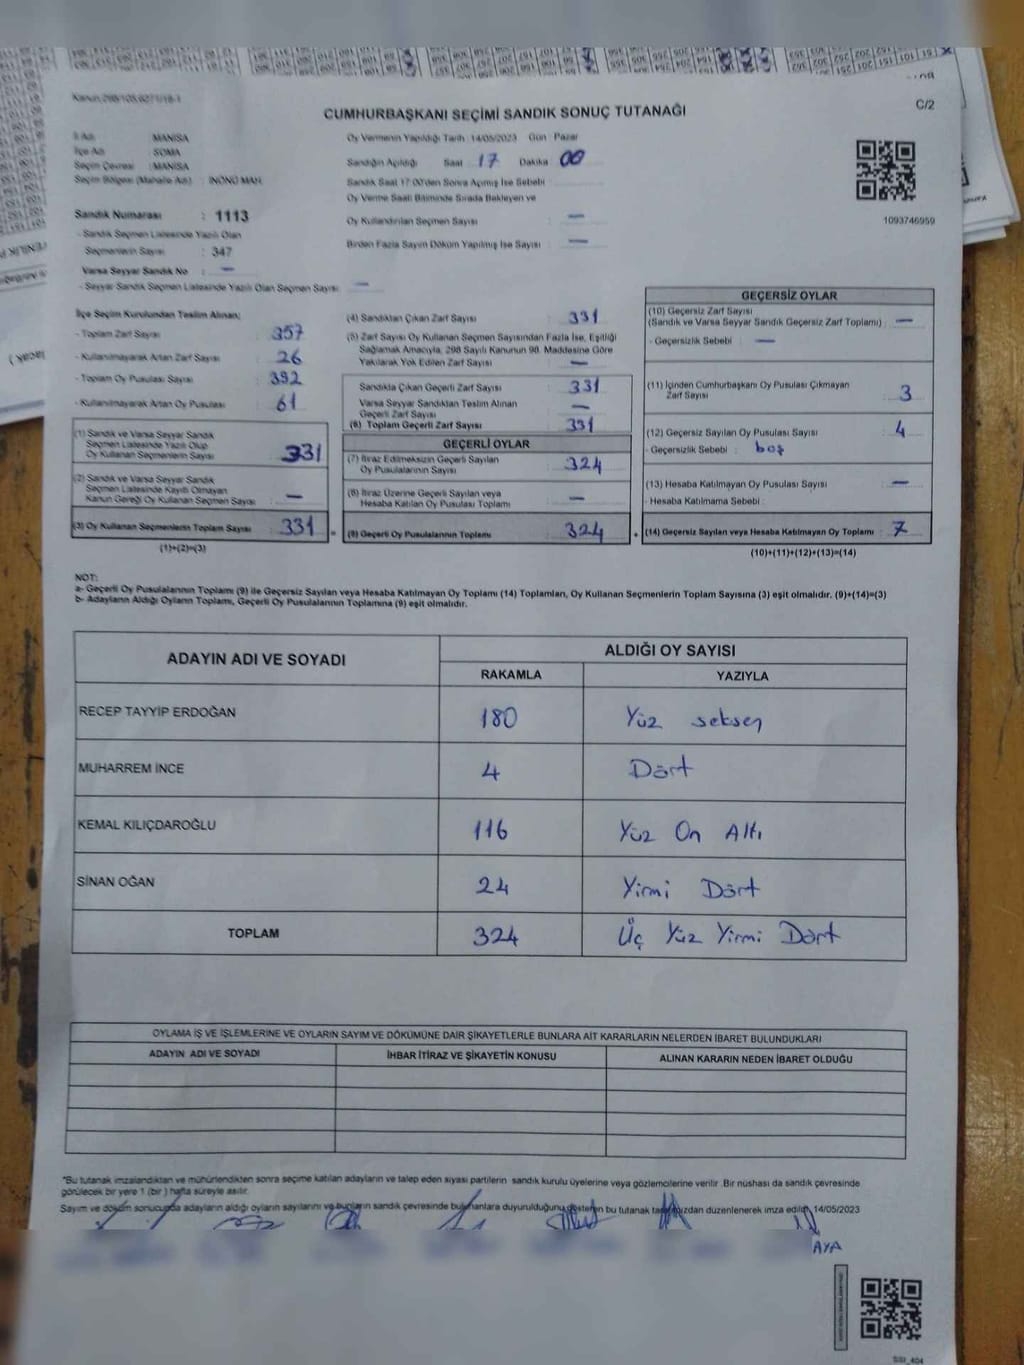 Kanun:298/105,6271/18-1
C/2
CUMHURBAŞKANI SEÇİMİ SANDIK SONUÇ TUTANAĞI
İl Adı : MANİSA
İlçe Adı : SOMA
Seçim Çevresi : MANİSA
Seçim Bölgesi (Mahalle Adı) : İNÖNÜ MAH.
Sandık Numarası : 1113
- Sandık Seçmen Listesinde Yazılı Olan
Seçmenlerin Sayısı : 347
Varsa Seyyar Sandık No : —
- Seyyar Sandık Seçmen Listesinde Yazılı Olan Seçmen Sayısı : —
Oy Vermenin Yapıldığı Tarih 14/05/2023 Gün Pazar
Sandığın Açıldığı Saat 17 Dakika 00
Sandık Saat 17:00'den Sonra Açılmış İse Sebebi :
Oy Verme Saati Bitiminde Sırada Bekleyen ve
Oy Kullandırılan Seçmen Sayısı : —
Birden Fazla Sayım Döküm Yapılmış İse Sayısı : —
1093746959
İlçe Seçim Kurulundan Teslim Alınan;
- Toplam Zarf Sayısı : 357
- Kullanılmayarak Artan Zarf Sayısı : 26
- Toplam Oy Pusulası Sayısı : 392
- Kullanılmayarak Artan Oy Pusulası : 61
(1) Sandık ve Varsa Seyyar Sandık
Seçmen Listesinde Yazılı Olup
Oy Kullanan Seçmenlerin Sayısı : 331
(2) Sandık ve Varsa Seyyar Sandık
Seçmen Listesinde Kayıtlı Olmayan
Kanun Gereği Oy Kullanan Seçmen Sayısı : —
(3) Oy Kullanan Seçmenlerin Toplam Sayısı : 331
(1)+(2)=(3)
(4) Sandıktan Çıkan Zarf Sayısı : 331
(5) Zarf Sayısı Oy Kullanan Seçmen Sayısından Fazla İse, Eşitliği
Sağlamak Amacıyla, 298 Sayılı Kanunun 98. Maddesine Göre
Yakılarak Yok Edilen Zarf Sayısı : —
Sandıkta Çıkan Geçerli Zarf Sayısı : 331
Varsa Seyyar Sandıktan Teslim Alınan
Geçerli Zarf Sayısı : —
(6) Toplam Geçerli Zarf Sayısı : 331
GEÇERLİ OYLAR
(7) İtiraz Edilmeksizin Geçerli Sayılan
Oy Pusulalarının Sayısı : 324
(8) İtiraz Üzerine Geçerli Sayılan veya
Hesaba Katılan Oy Pusulası Toplamı : —
(9) Geçerli Oy Pusulalarının Toplamı : 324
GEÇERSİZ OYLAR
(10) Geçersiz Zarf Sayısı
(Sandık ve Varsa Seyyar Sandık Geçersiz Zarf Toplamı) : —
- Geçersizlik Sebebi : —
(11) İçinden Cumhurbaşkanı Oy Pusulası Çıkmayan
Zarf Sayısı : 3
(12) Geçersiz Sayılan Oy Pusulası Sayısı : 4
- Geçersizlik Sebebi : boş
(13) Hesaba Katılmayan Oy Pusulası Sayısı : —
- Hesaba Katılmama Sebebi :
(14) Geçersiz Sayılan veya Hesaba Katılmayan Oy Toplamı : 7
(10)+(11)+(12)+(13)=(14)
NOT:
a- Geçerli Oy Pusulalarının Toplamı (9) ile Geçersiz Sayılan veya Hesaba Katılmayan Oy Toplamı (14) Toplamları, Oy Kullanan Seçmenlerin Toplam Sayısına (3) eşit olmalıdır. (9)+(14)=(3)
b- Adayların Aldığı Oyların Toplamı, Geçerli Oy Pusulalarının Toplamına (9) eşit olmalıdır.
ADAYIN ADI VE SOYADI ALDIĞI OY SAYISI
RAKAMLA YAZIYLA
RECEP TAYYİP ERDOĞAN 180 Yüz seksen
MUHARREM İNCE 4 Dört
KEMAL KILIÇDAROĞLU 116 Yüz On Altı
SİNAN OĞAN 24 Yirmi Dört
TOPLAM 324 Üç Yüz Yirmi Dört
OYLAMA İŞ VE İŞLEMLERİNE VE OYLARIN SAYIM VE DÖKÜMÜNE DAİR ŞİKAYETLERLE BUNLARA AİT KARARLARIN NELERDEN İBARET BULUNDUKLARI
ADAYIN ADI VE SOYADI İHBAR İTİRAZ VE ŞİKAYETİN KONUSU ALINAN KARARIN NEDEN İBARET OLDUĞU
*Bu tutanak imzalandıktan ve mühürlendikten sonra seçime katılan adayların ve talep eden siyasi partilerin sandık kurulu üyelerine veya gözlemcilerine verilir .Bir nüshası da sandık çevresinde
görülecek bir yere 1 (bir) hafta süreyle asılır.
Sayım ve döküm sonucunda adayların aldığı oyların sayılarını ve bunların sandık çevresinde bulunanlara duyurulduğunu gösteren bu tutanak tarafımızdan düzenlenerek imza edildi. 14/05/2023
AYA
SSI_404